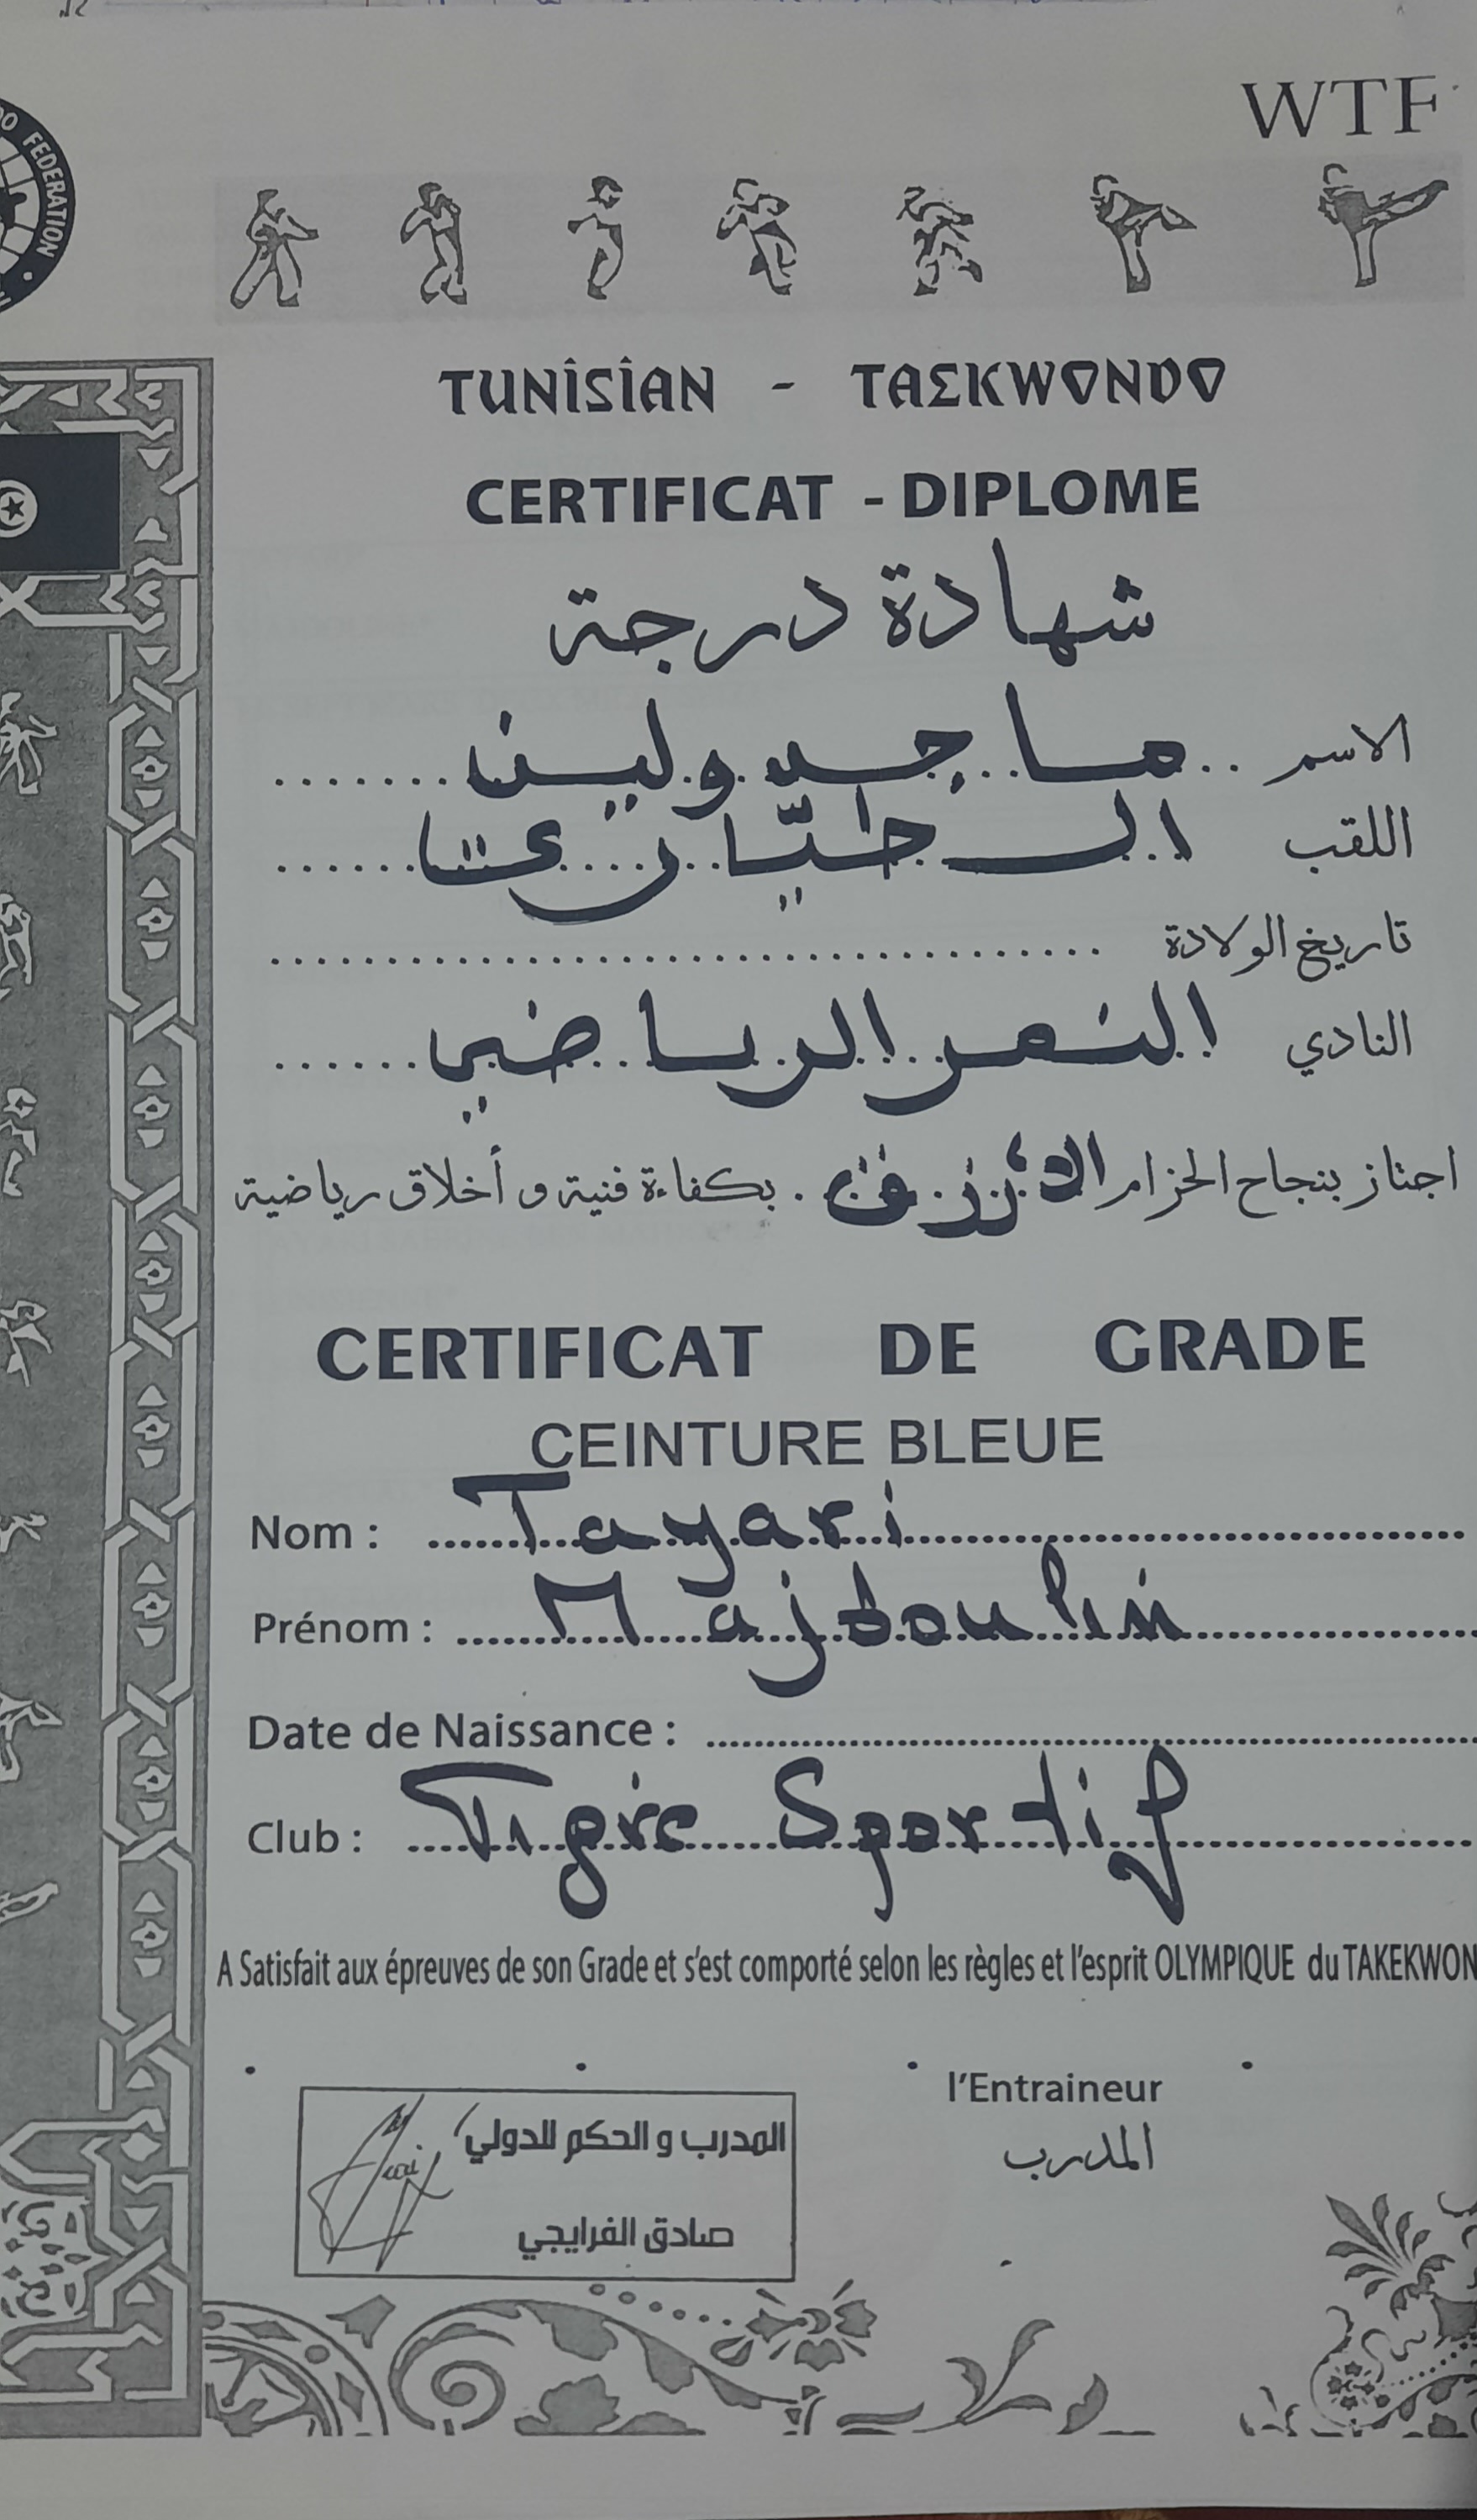 WTF
FEDERATION
TUNISIAN - TAEKWONDO
CERTIFICAT - DIPLOME
شهادة درجة
الاسم ماجدولين
اللقب الطياري
تاريخ الولادة
النادي النمر الرياضي
اجتاز بنجاح الحزام الأزرق بكفاءة فنية و أخلاق رياضية
CERTIFICAT DE GRADE
CEINTURE BLEUE
Nom : Tayari
Prénom : Majdoulin
Date de Naissance :
Club : Tigre Sportif
A Satisfait aux épreuves de son Grade et s'est comporté selon les règles et l'esprit OLYMPIQUE du TAKEKWON
l'Entraineur
المدرب
المدرب و الحكم الدولي
صادق الفرايجي